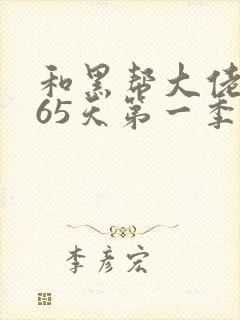 和黑帮大佬
65天第一季
李彦宏